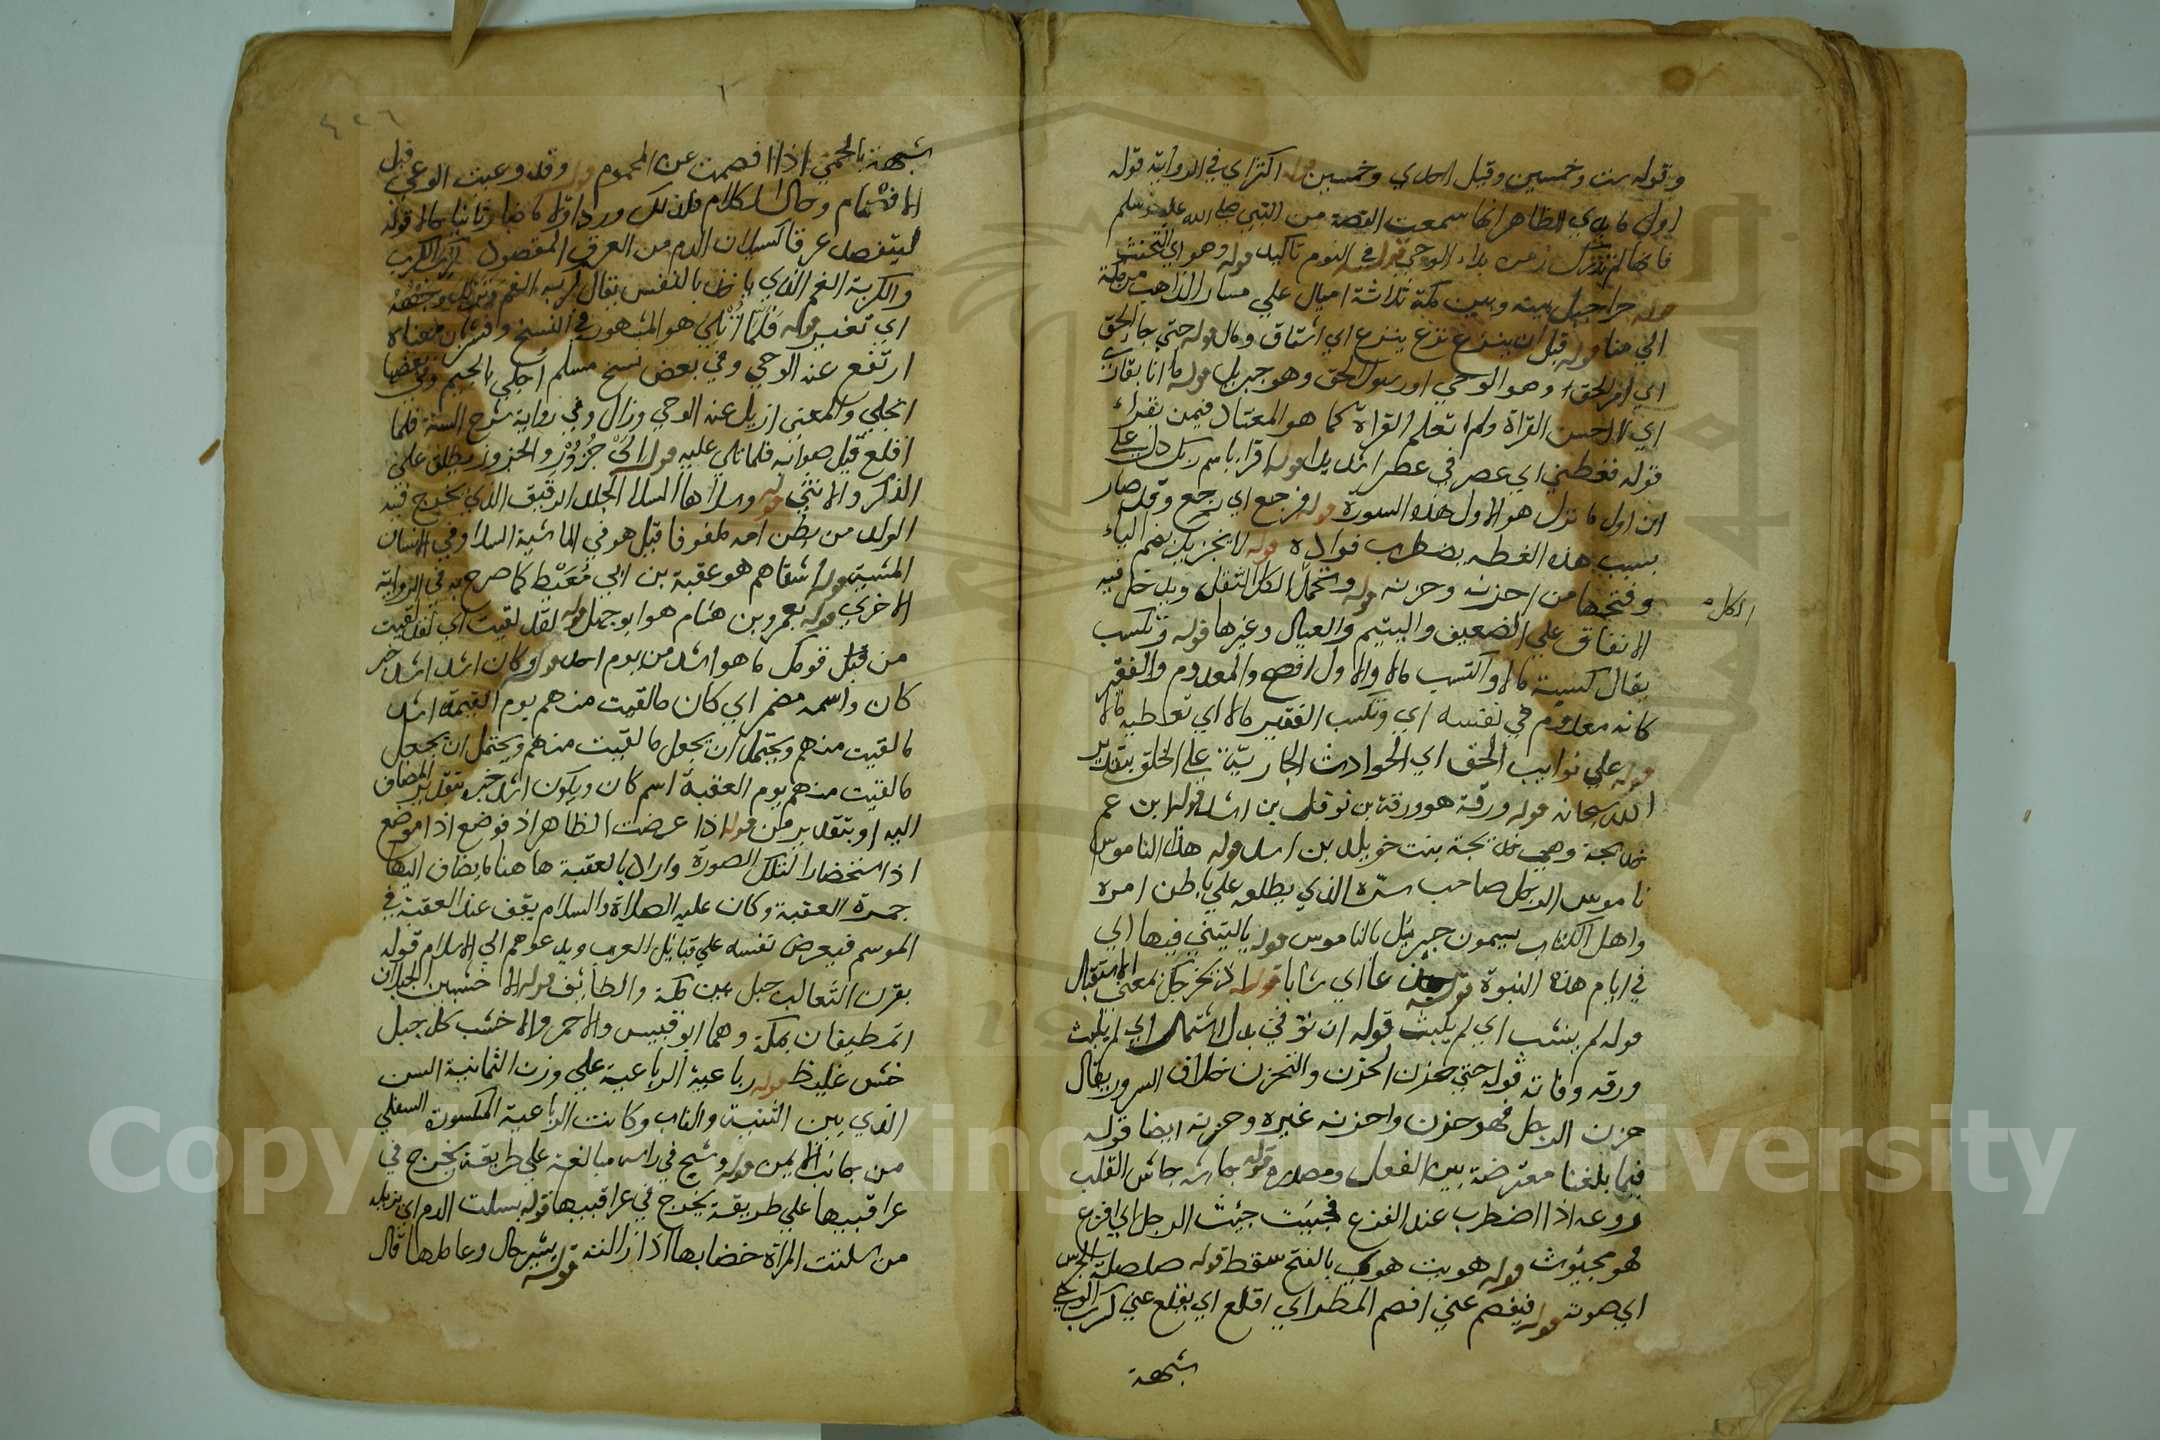 وقوله ست وخمسين وقيل احدى وخمسين قوله اكثر اي في الرواية قوله
اول ما بدي الظاهر انها سمعت القصة من النبي صلى الله عليه وسلم
فانها لم تدرك زمن بداء الوحي قوله في النوم تاكيد قوله وهو اي التحنث
قوله حرا جبل بينه وبين مكة ثلاثة اميال علي مسار الذاهب من مكة
الي منا قوله قبل ان ينزع نزع ينزع اي اشتاق ومال قوله حتي جاه الحق
اي امر الحق وهو الوحي او رسول الحق وهو جبريل قوله ما انا بقاري
اي لا احسن القراة ولم اتعلم القراة كما هو المعتاد فيمن يقراء
قوله فغطني اي عصرني عصرا شديدا قوله اقرا باسم ربك دل علي
ان اول ما نزل هو الاول هذه السورة قوله فرجع اي رجع وقد صار
بسبب هذه الغطه يضطرب فواده قوله لا يخزيك بضم الياء
وفتحها من احزنه وحزنه قوله وتحمل الكل الثقل ويدخل فيه
الكل
الانفاق علي الضعيف واليتيم والعيال وغيرها قوله وتكسب
يقال كسبت مالا واكتسب مالا والاول افصح والمعدوم والفقير
كانه معدوم في نفسه اي وتكسب الفقير مالا اي تعطيه مالا
قوله علي نوايب الحق اي الحوادث الجارية علي الخلق بتقدير
الله سبحانه قوله ورقة هو ورقة بن نوفل بن اسد قوله ابن عم
خديجة وهي خديجة بنت خويلد بن اسد قوله هذا الناموس
ناموس الرجل صاحب سره الذي يطلعه علي باطن امره
واهل الكتاب يسمون جبرئيل بالناموس قوله ياليتني فيها اي
في ايام هذه النبوة قوله جذعا اي شابا قوله اذ يخرجك بمعني الاستقبال
قوله لم ينشب اي لم يلبث قوله ان توفي بدل اشتمال اي لم يلبث
ورقه وفاته قوله حتي حزن الحزن والتحزن خلاف السرور يقال
حزن الرجل فهو حزن واحزنه غيره وحزنه ايضا قوله
فيما بلغنا معترضة بين الفعل ومصدره قوله جاشه جاش القلب
روعه اذا اضطرب عند الفزع فجئثت جئث الرجل اي افزع
فهو مجئوث قوله هويت هوي بالفتح سقط قوله صلصلة الجرس
اي صوته قوله فيفصم عني افصم المطر اي اقلع اي يقلع عني كرب الوحي
شبهة
٤٢٦
شبهة بالحمي اذا افصمت عن المحموم قوله وقد وعيت الوعي قبل
الافصام وحال الكلام فلذلك ورد اولا ماضيا وثانيا حالا قوله
ليتفصد عرقا كسيلان الدم من العرق المقصود قوله كرب الكرب
والكربة الغم الذي ياخذ بالنفس يقال كربه الغم وتربد وجهه
اي تغير قوله فلما اتلي هو المشهور في النسخ وفسر بان معناه
ارتفع عنه الوحي وفي بعض نسخ مسلم اجلي بالجيم وفي بعضها
انجلي والمعني ازيل عنه الوحي وزال وفي رواية شرح السنة فلما
اقلع قيل صوابه فلما تلي عليه قوله الي جزور والجزور يطلق علي
الذكر والانثي قوله وسلاها السلا الجلد الرقيق الذي يخرج فيه
الولد من بطن امه ملفوفا قيل هو في الماشية السلا وفي الانسان
المشيمة قوله اشقاهم هو عقبة بن ابي معيط كما صرح به في الرواية
الاخري قوله بعمرو بن هشام هو ابو جهل قوله لقد لقيت اي لقد لقيت
من قبل قومك ما هو اشد من يوم احد قوله وكان اشد اشد خبر
كان واسمه مضمر اي كان مالقيت منهم يوم القيمة اشد
مالقيت منهم ويحتمل ان يجعل مالقيت منهم ويحتمل ان يجعل
مالقيت منهم يوم العقبة اسم كان ويكون اشد خبره بتقدير المضاف
اليه او بتقدير من قوله اذا عرضت الظاهر اذ فوضع اذا موضع
اذ استحضارا لتلك الصورة واراد بالعقبة هاهنا ما يضاف اليها
جمرة العقبة وكان عليه الصلاة والسلام يقف عند العقبة في
الموسم فيعرض نفسه علي قبائل العرب ويدعوهم الي الاسلام قوله
بقرن الثعالب جبل بين مكة والطائف قوله الاخشبين الجبلان
المطيفان بمكة وهما ابو قبيس والاحمر والاخشب كل جبل
خشن غليظ قوله رباعية الرباعية علي وزن الثمانية السن
الذي بين الثنية والناب وكانت الرباعية المكسورة السفلي
من جانب الايمن قوله وشج في راسه مبالغة علي طريقة يخرج في
عراقيبها علي طريقة يخرج في عراقيبها قوله يسلت الدم اي يزيله
من سلتت المراة خضابها اذا ازالته قوله يشير حال وعاملها قال